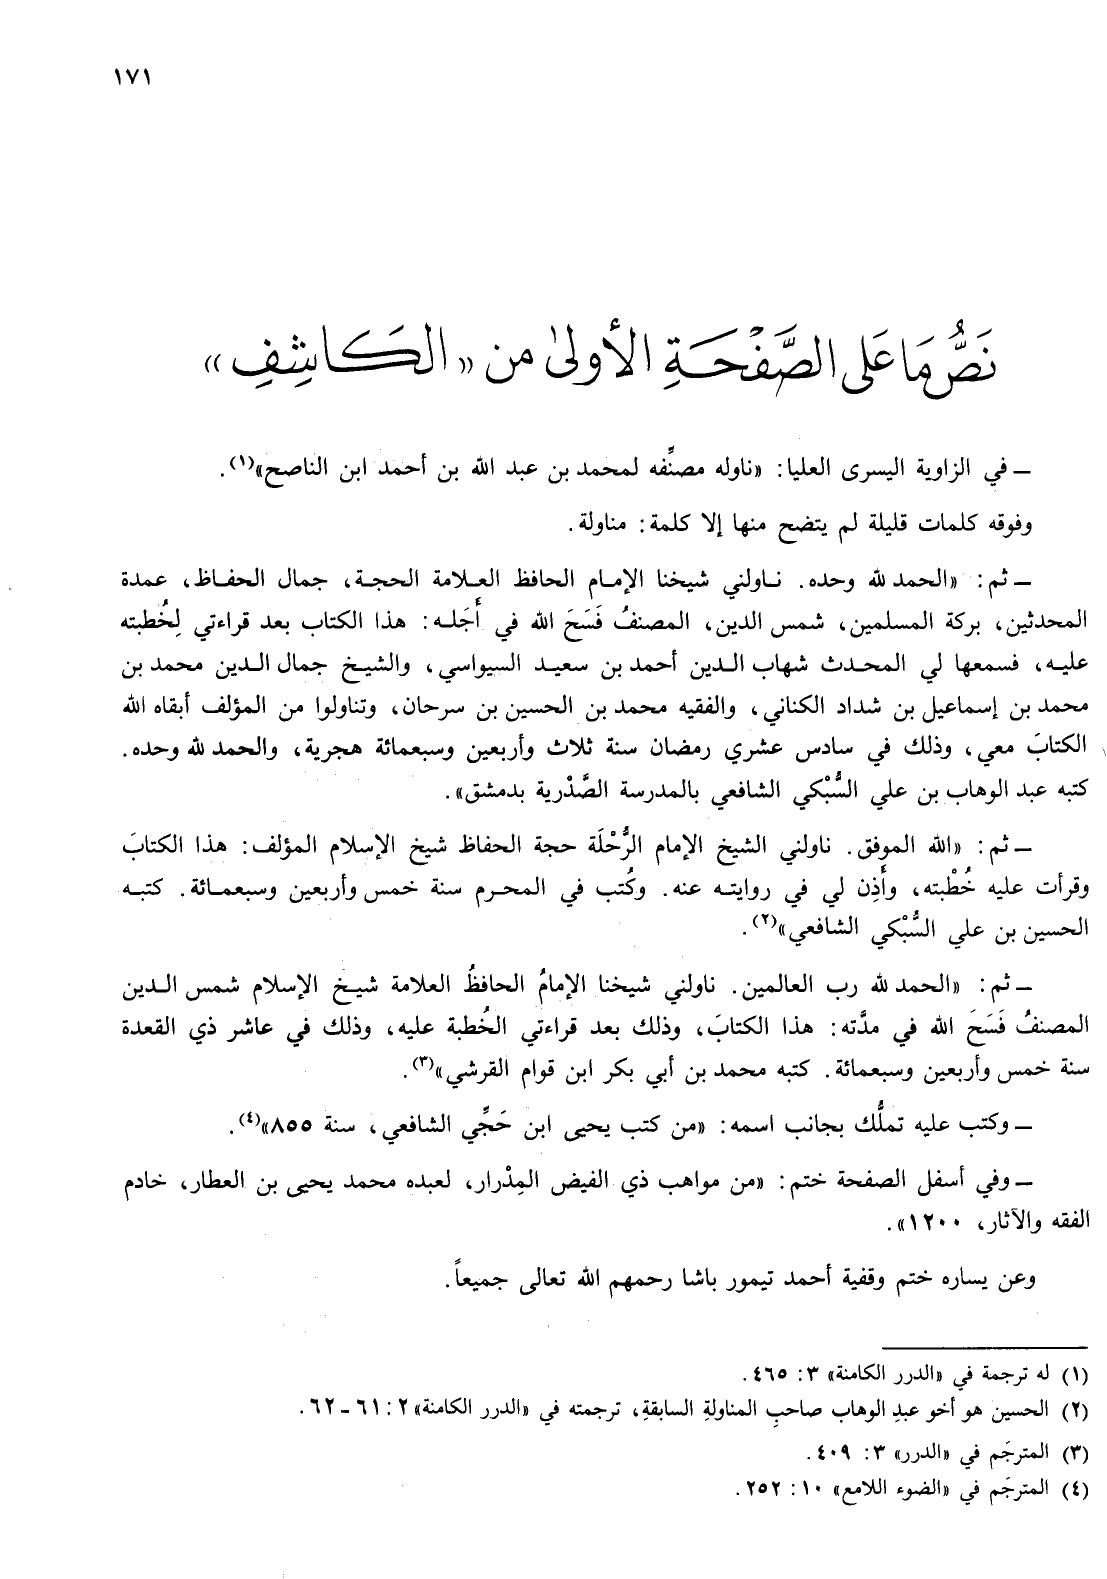 ١٧١
نَصُّ مَا عَلى الصَّفْحَةِ الأولىٰ من «الكَاشِفِ»
ــ في الزاوية اليسرى العليا: «ناوله مصنِّفه لمحمد بن عبد الله بن أحمد ابن الناصح»(١).
وفوقه كلمات قليلة لم يتضح منها إلا كلمة: مناولة.
ــ ثم: «الحمد لله وحده. نـاولني شيخنا الإمـام الحافظ العـلامة الحجـة، جمال الحفـاظ، عمدة
المحدثين، بركة المسلمين، شمس الدين، المصنفُ فَسَحَ الله في أَجَلـه: هذا الكتاب بعد قراءتي لِخُطبته
عليـه، فسمعها لي المحـدث شهاب الـدين أحمد بن سعيـد السيواسي، والشيـخ جمال الـدين محمد بن
محمد بن إسماعيل بن شداد الكناني، والفقيه محمد بن الحسين بن سرحان، وتناولوا من المؤلف أبقاه الله
الكتابَ معي، وذلك في سادس عشري رمضان سنة ثلاث وأربعين وسبعمائة هجرية، والحمد لله وحده.
كتبه عبد الوهاب بن علي السُّبْكي الشافعي بالمدرسة الصَّدْرية بدمشق».
ــ ثم: «الله الموفق. ناولني الشيخ الإمام الرُّحْلَة حجة الحفاظ شيخ الإسلام المؤلف: هذا الكتابَ
وقرأت عليه خُطْبته، وأَذِن لي في روايتـه عنه. وكُتب في المحـرم سنة خمس وأربعين وسبعمـائة. كتبـه
الحسين بن علي السُّبْكي الشافعي»(٢).
ــ ثم: «الحمد لله رب العالمين. ناولني شيخنا الإمامُ الحافظُ العلامة شيـخ الإسلام شمس الـدين
المصنفُ فَسَحَ الله في مدَّته: هذا الكتابَ، وذلك بعد قراءتي الخُطبة عليه، وذلك في عاشر ذي القعدة
سنة خمس وأربعين وسبعمائة. كتبه محمد بن أبي بكر ابن قوام القرشي»(٣).
ــ وكتب عليه تملُّك بجانب اسمه: «من كتب يحيى ابن حَجِّي الشافعي، سنة ٨٥٥»(٤).
ــ وفي أسفل الصفحة ختم: «من مواهب ذي الفيض المِدْرار، لعبده محمد يحيى بن العطار، خادم
الفقه والآثار، ١٢٠٠».
وعن يساره ختم وقفية أحمد تيمور باشا رحمهم الله تعالى جميعاً.
(١) له ترجمة في «الدرر الكامنة» ٣: ٤٦٥.
(٢) الحسين هو أخو عبدِ الوهاب صاحبِ المناولةِ السابقةِ، ترجمته في «الدرر الكامنة» ٢: ٦١ ــ ٦٢.
(٣) المترجَم في «الدرر» ٣: ٤٠٩.
(٤) المترجَم في «الضوء اللامع» ١٠: ٢٥٢.